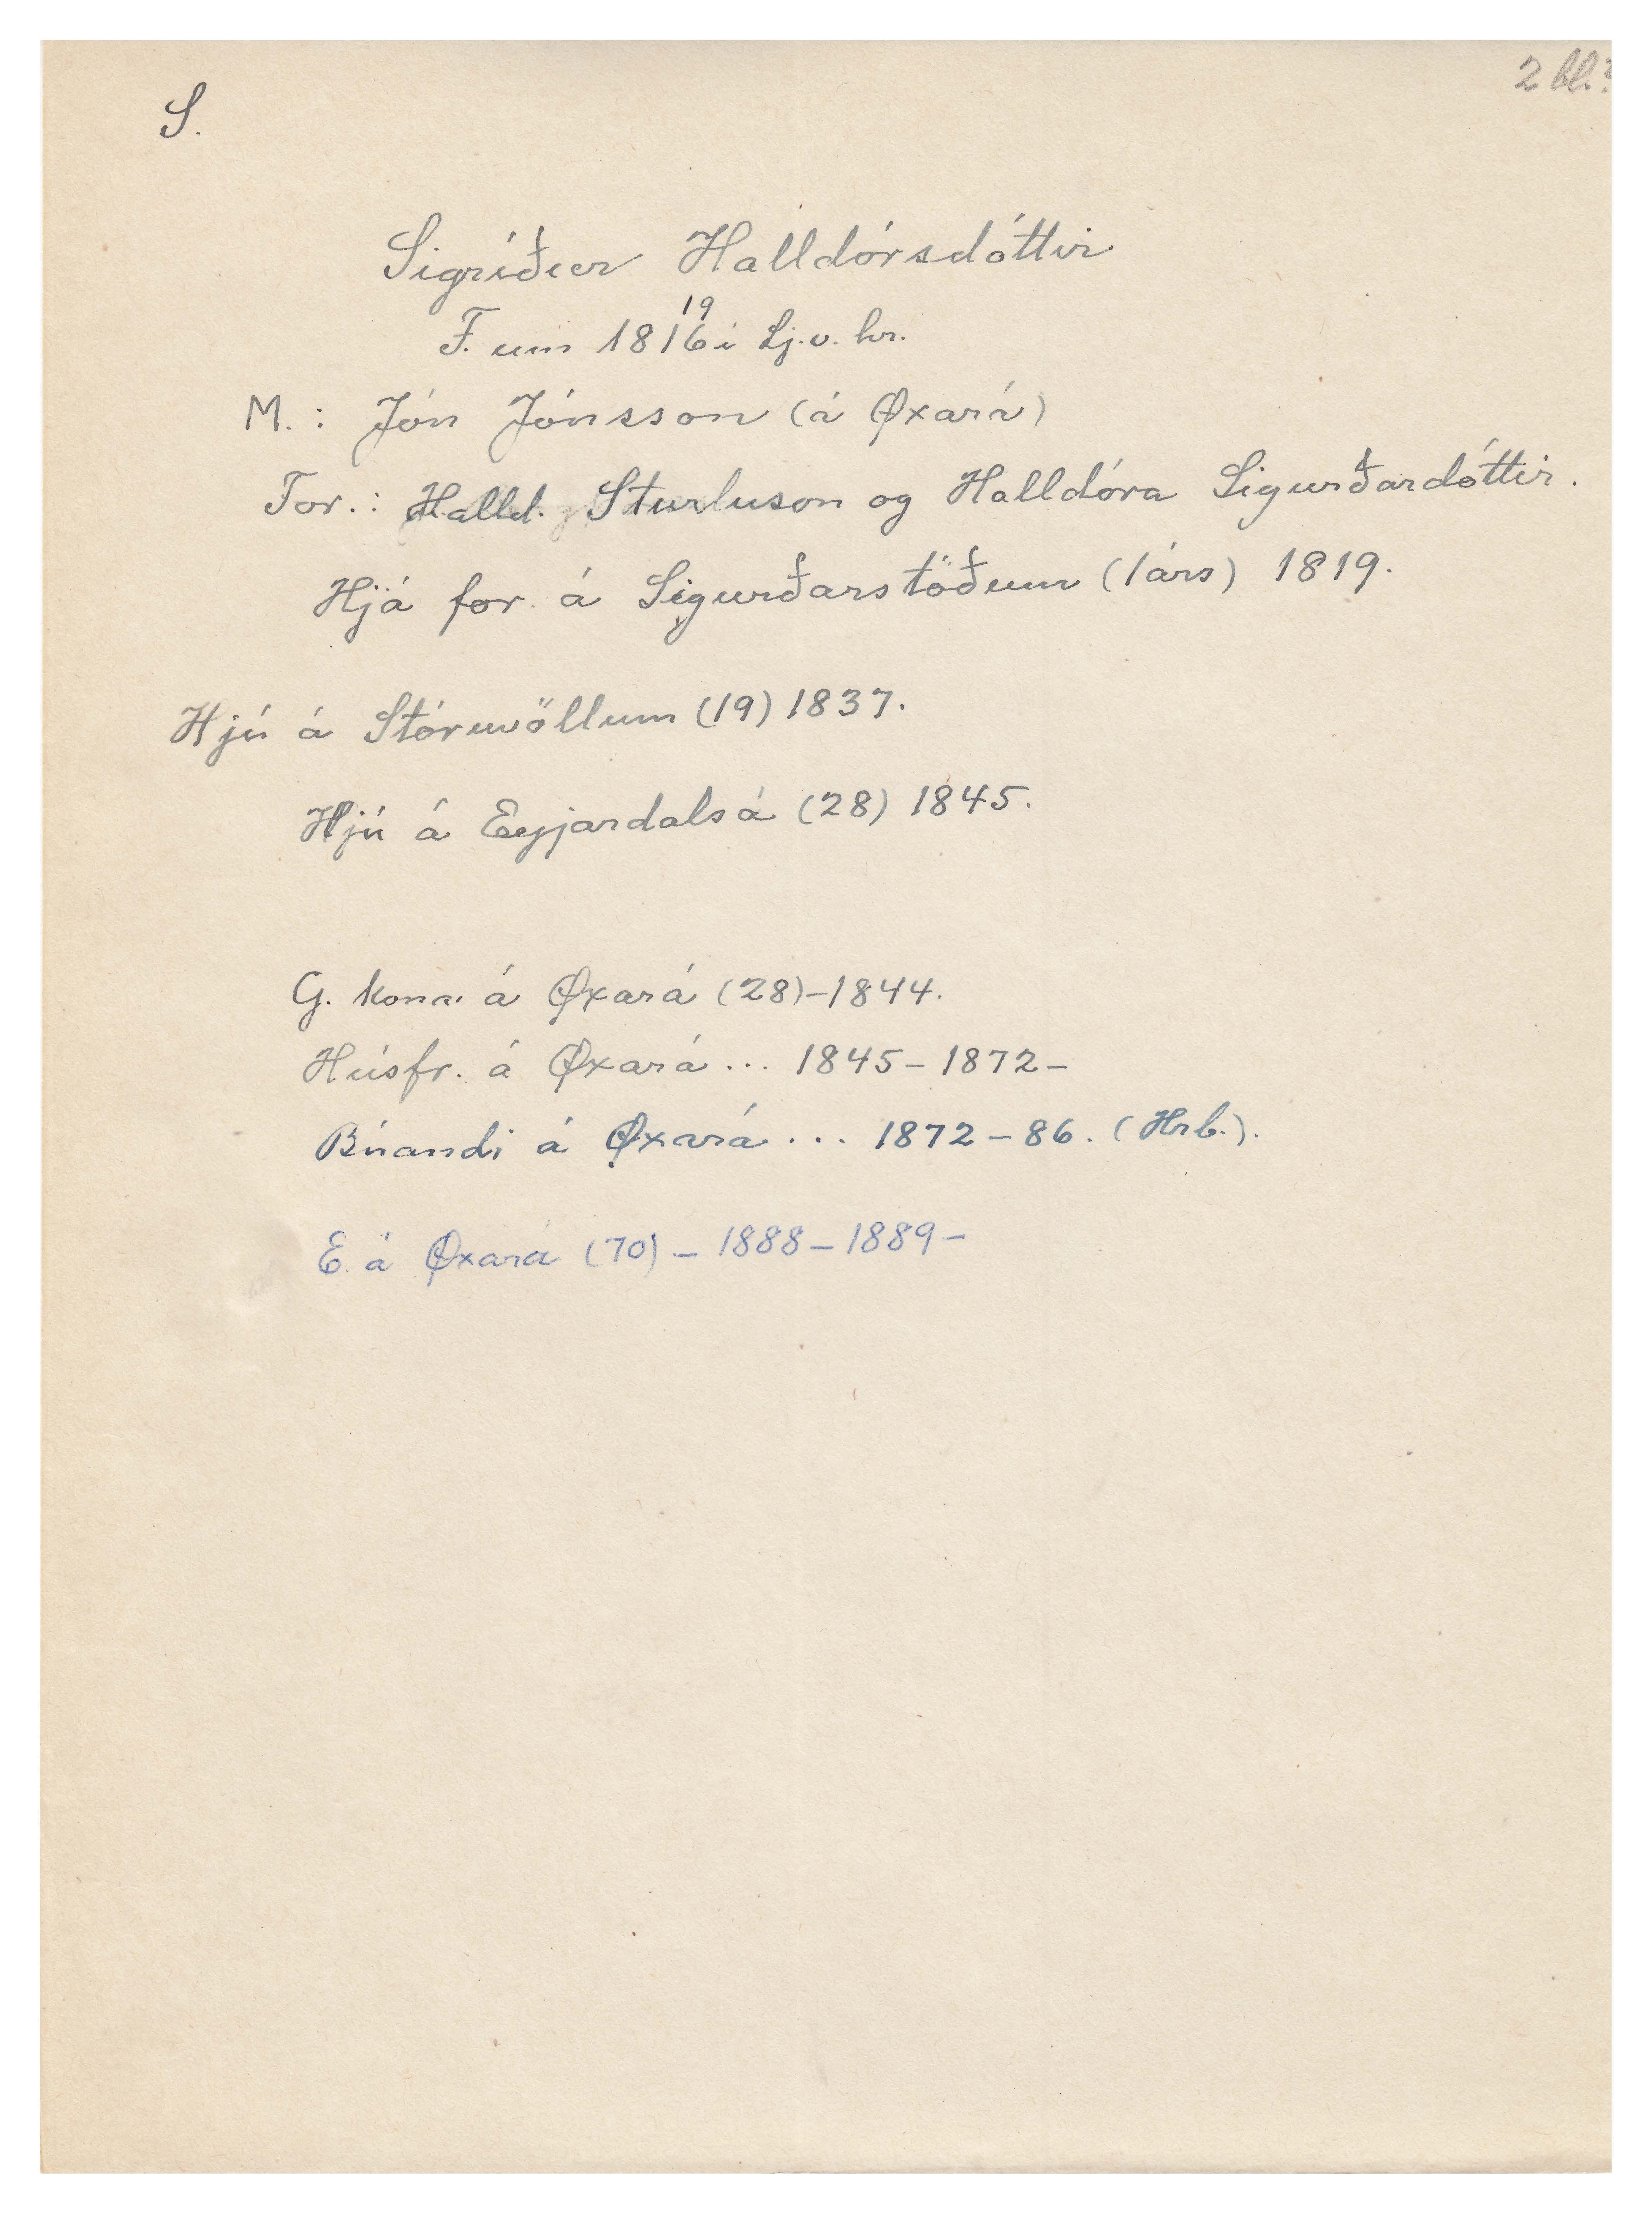 2 bl.?
S.
Sigríður Halldórsdóttir
19
F. um 1816 í Lj.v. hr.
M.: Jón Jónsson (á Øxará)
For.: Halld. Sturluson og Halldóra Sigurðardóttir.
Hjá for. á Sigurðarstöðum (1árs) 1819.
Hjú á Stóruvöllum (19) 1837.
Hjú á Eyjardalsá (28) 1845.
G. kona á Øxará (28)-1844.
Húsfr. á Øxará ... 1845-1872-
Búandi á Øxará ... 1872-86. (Hrb.).
E. á Øxará (70) - 1888-1889-